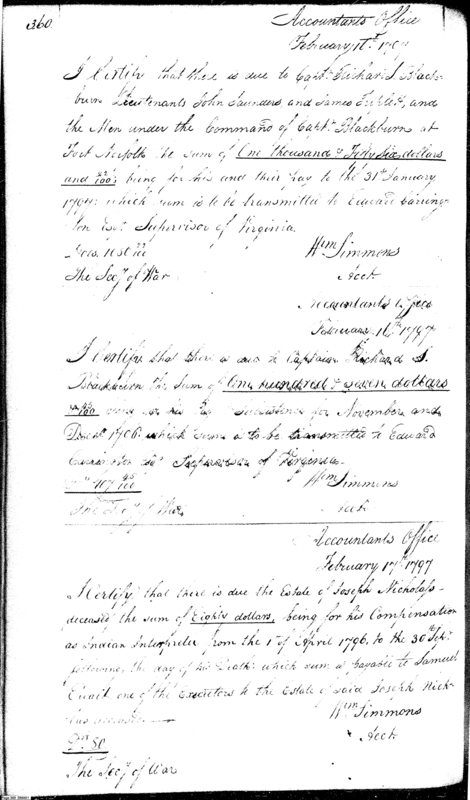 360.
Accountants Office
February 1797
I Certify that there is due to Capt. Richard S. Black-
burn Lieutenants John Saunders and James Triplett, and
the Men under the Command of Capt. Blackburn at
Fort Norfolk the sum of One thousand & Fifty Six dollars
and /100; being for his and their pay to the 31st January
1797: which sum is to be transmitted to Edward Carring-
ton Esqr. Supervisor of Virginia.
Wm Simmons
The Secy of War
Acct
Accountants Office
February 16th 1797
I Certify that there is due to Captain Richard S.
Blackburn the sum of One hundred & seven dollars
/100 being for his Subsistence for November and
Decr. 1796. which sum is to be transmitted to Edward
Carrington Esqr. Supervisor of Virginia.
107 /100
Wm Simmons
The Secy of War
Acct
Accountants Office
February 17th 1797
I Certify that there is due the Estate of Joseph Nicholass-
deceased the sum of Eighty dollars, being for his Compensation
as Indian Interpreter from the 1st of April 1796. to the 30th Sepr.
following, the day of his Death: which sum is payable to Samuel
one of the Executors to the Estate of said Joseph Nich-
olas deceased.
Wm Simmons
Drs 80
Acct
The Secy of War